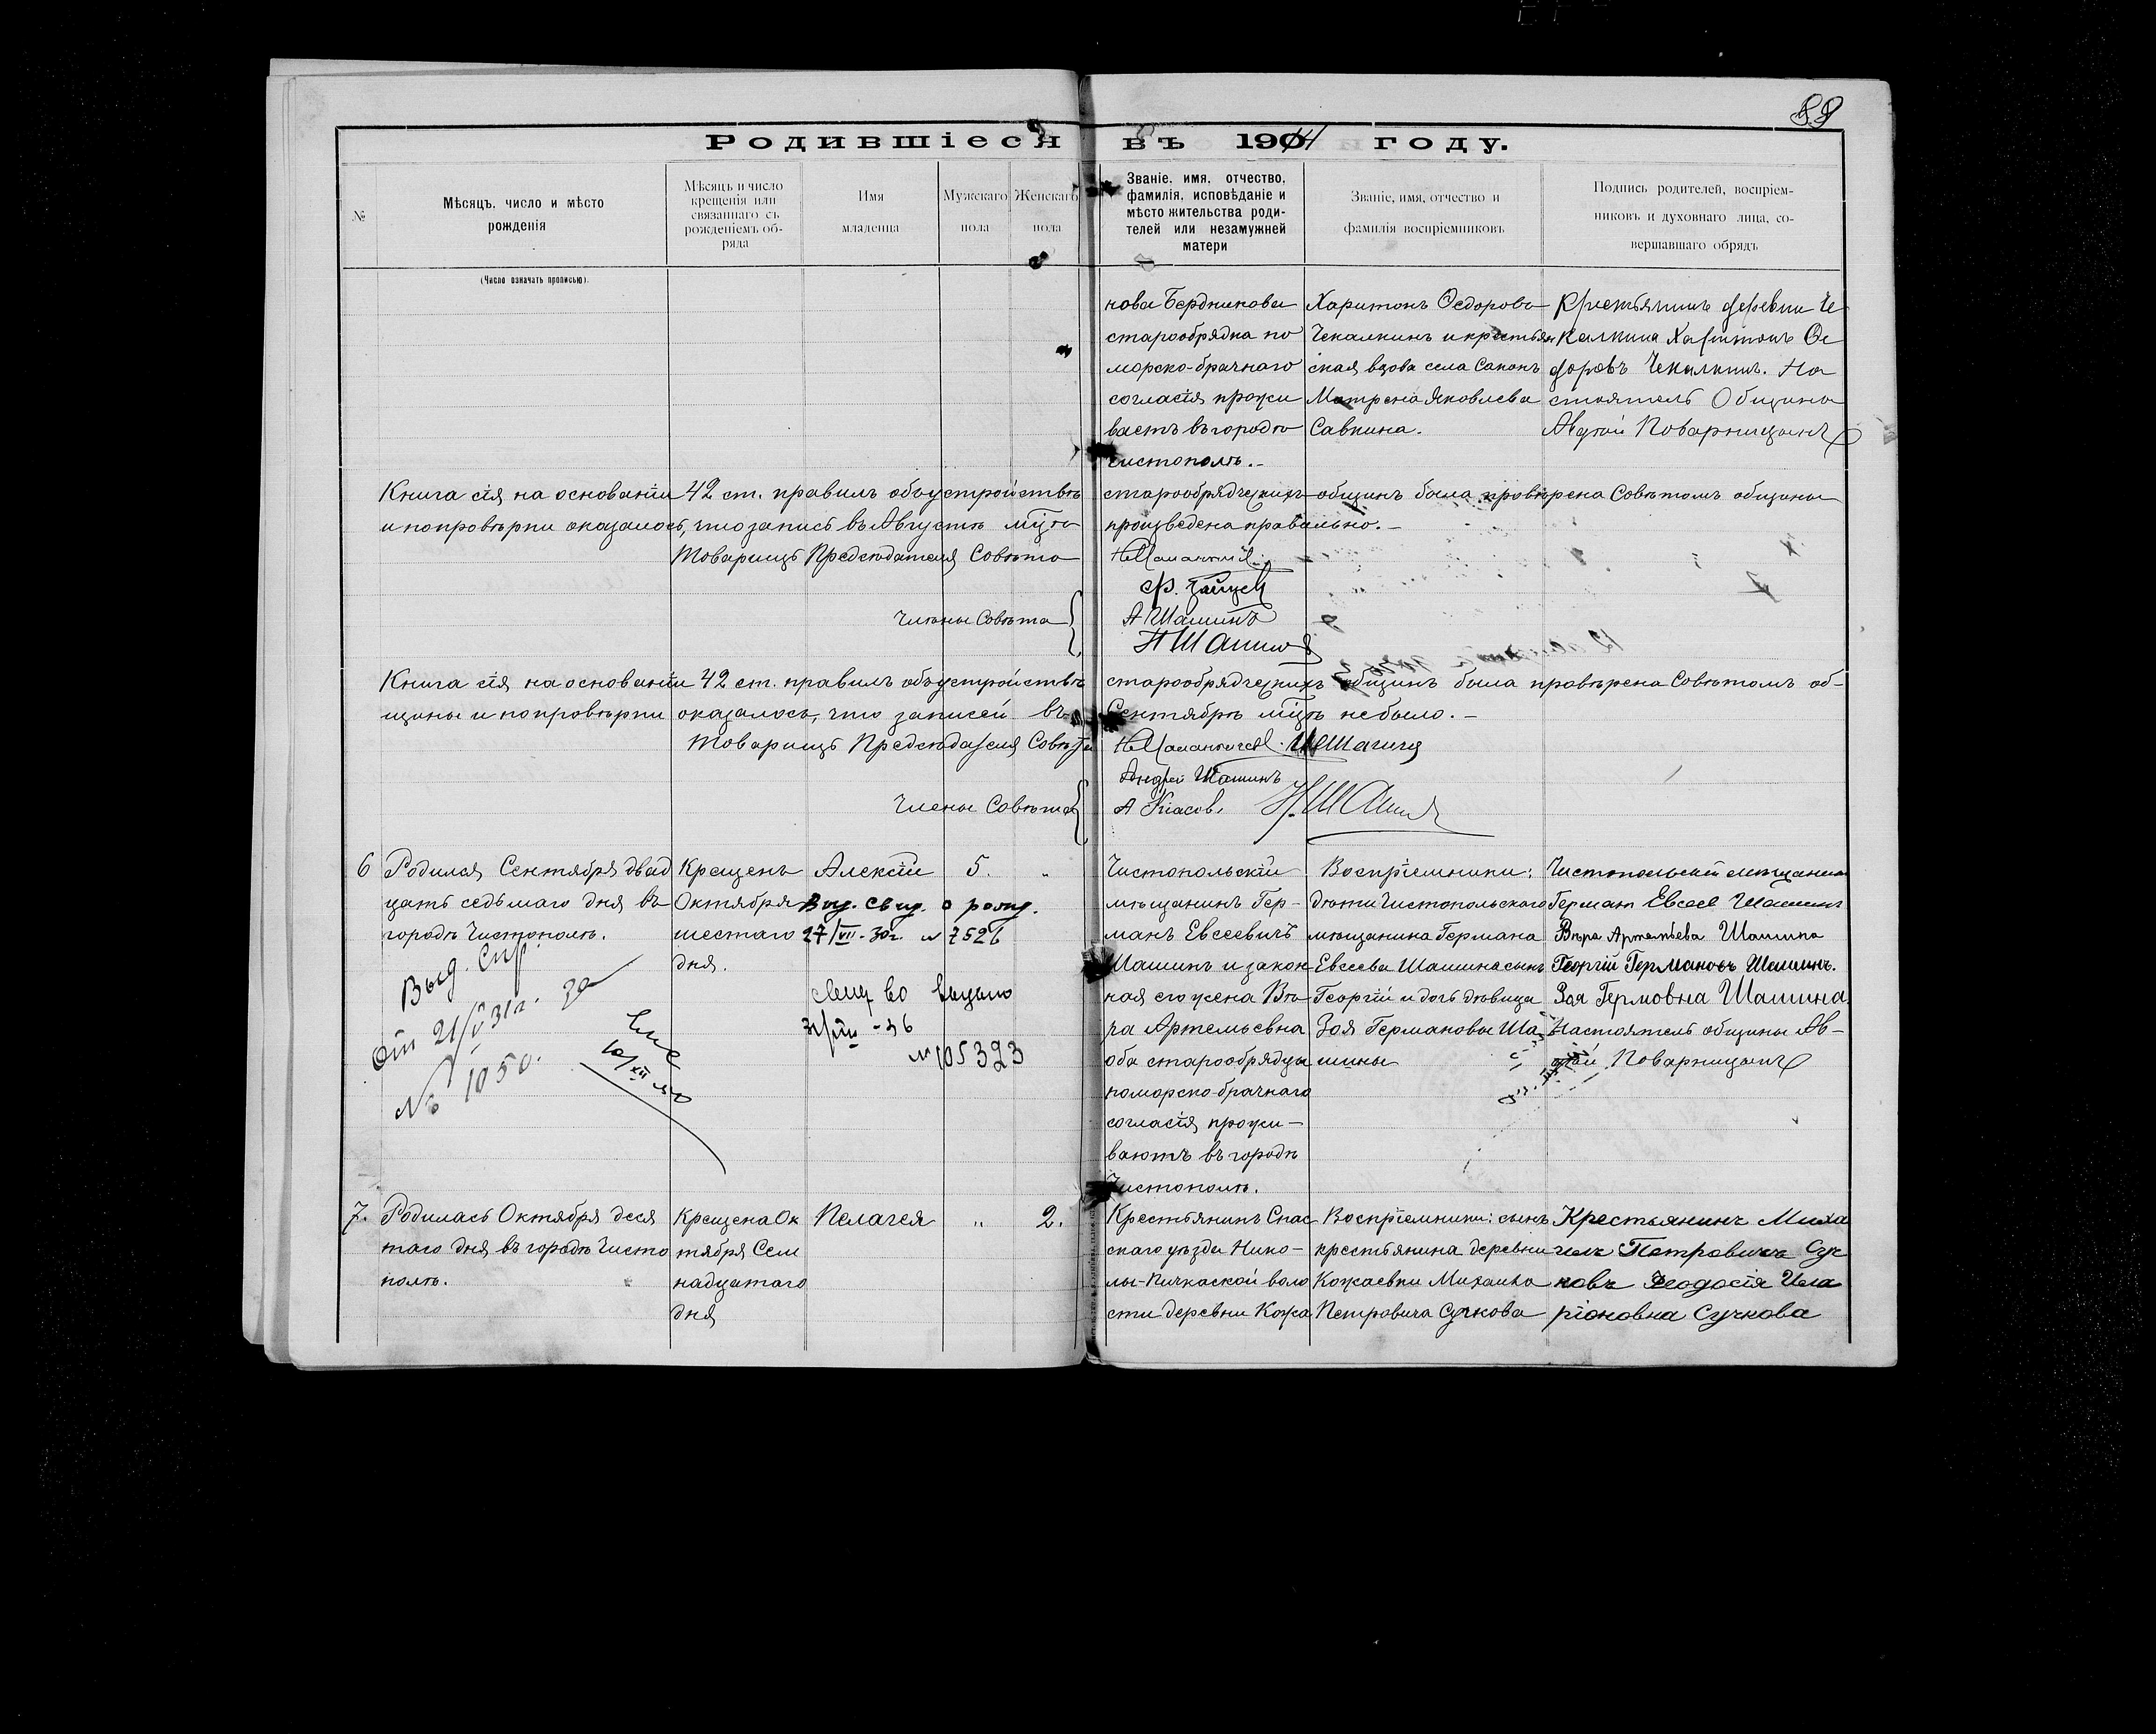 88
Родившіеся въ 1904 году.
№
Мѣсяцъ, число и мѣсто
рожденія
(Число означать прописью).
Мѣсяцъ и число
крещенія или
связаннаго съ
рожденіемъ об-
ряда
Имя
младенца
Мужскаго
пола
Женскаго
пола
Званіе, имя, отчество,
фамилія, исповѣданіе и
мѣсто жительства роди-
телей или незамужней
матери
Званіе, имя, отчество и
фамилія воспріемниковъ
Подпись родителей, воспріем-
никовъ и духовнаго лица, со-
вершавшаго обрядъ
нова Бердникова
старообрядка по
морско-брачнаго
согласія прожи
ваетъ въ городѣ
Чистополѣ.-
Харитонъ Ѳедоровъ
Чекалкинъ и крестьян
ская вдова села
Матрена Яковлева
Савкина.
Крестьянинъ деревни Че
калкина Харитонъ Ѳе
доровъ Чекалкинъ. На
стоятель Общины
Авдѣй Поварницынъ
Книга сія на основаніи 42 ст. правилъ объ устройствѣ старообрядческихъ общинъ была провѣрена Совѣтомъ общины
и по провѣрки оказалось, что запись въ Августѣ мѣс. произведена правильно.-
Товарищъ Предсѣдателя Совѣта
Члены Совѣта
А Шашинъ
Н Шашинъ
Книга сія на основаніи 42 ст. правилъ объ устройствѣ старообрядческихъ общинъ была провѣрена Совѣтомъ об-
щины и по провѣрки оказалось, что записей въ Сентябрѣ мѣс. не было.-
Товарищъ Предсѣдателя Совѣта
Андрей Шашинъ
Члены Совѣта
6
Родился Сентября двад
цать седьмаго дня въ
городѣ Чистополѣ.
Выд. Спр.
от 21/V 31г. За
№ 1050.
Крещенъ
Октября
шестаго
дня.
Алексѣй
5.
"
Выд. свид. о рожд.
27/VII-30г. № 7526
свид во выдано
31/III-36
№ 105323
Чистопольскій
мѣщанинъ Гер-
манъ Евсеевичъ
Шашинъ и закон
ная его жена Вѣ
ра Артемьевна
оба старообрядцы
поморско-брачнаго
согласія прожи-
ваютъ въ городѣ
Чистополѣ.
Воспріемники:
дѣти Чистопольскаго
мѣщанина Германа
Евсеева Шашина сынъ
Георгій и дочь дѣвица
Зоя Германовы Ша
шины
Чистопольский мѣщанин
Герман Евсеев Шашин
Вѣра Артемьева Шашина
Георгій Германовъ Шашинъ.
Зоя Гермовна Шашина
Настоятель общины Ав-
дѣй Поварницынъ
7.
Родилась Октября деся
таго дня въ городѣ Чисто
полѣ.
Крещена Ок
тября Сем
надцатаго
дня
Пелагея
"
2.
Крестьянинъ Спас
скаго уѣзда Нико-
лы-Пичкаской воло
сти деревни Кожа
Воспріемники: сынъ
крестьянина деревни
Кожаевки Михаила
Петровича Сучкова
Крестьянинъ Миха
илъ Петровичъ Суч
ковъ Феодосія Ила
ріоновна Сучкова